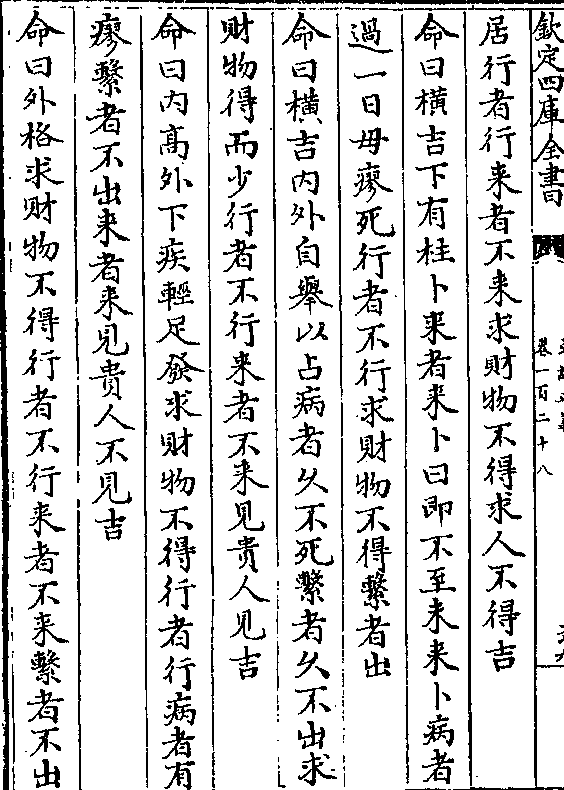 欽定四庫全書
卷一百二十八
居行者行來者不來求財物不得求人不得吉
命曰橫吉下有柱卜來者來卜曰即不至未來卜病者
過一日毋瘳死行者不行求財物不得繫者出
命曰橫吉內外自舉以占病者久不死繫者久不出求
財物得而少行者不行來者不來見貴人見吉
命曰內髙外下疾輕足發求財物不得行者行病者有
瘳繫者不出來者來見貴人不見吉
命曰外格求財物不得行者不行來者不來繫者不出